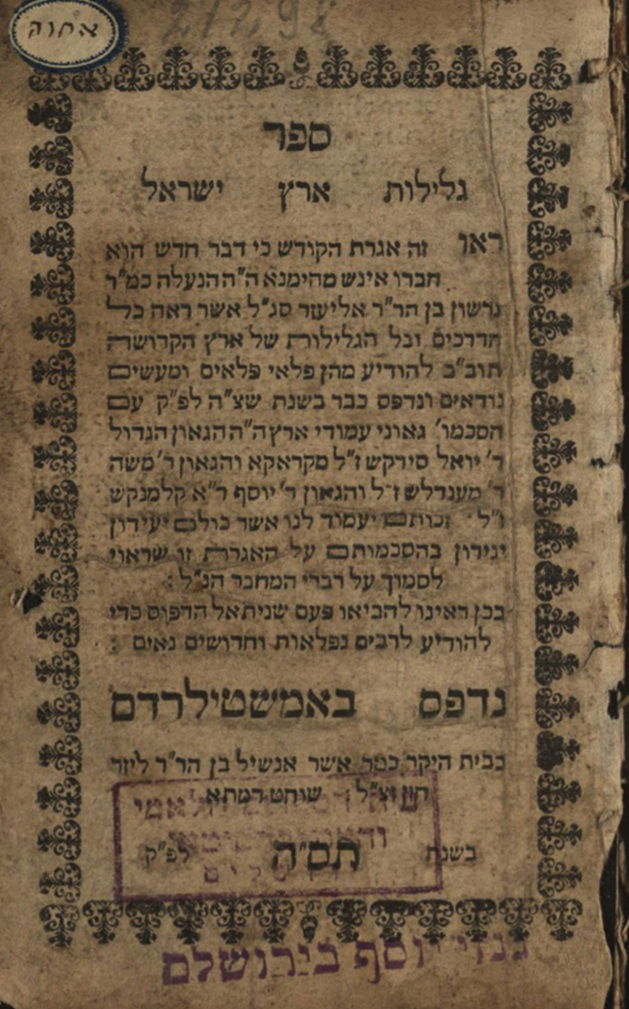 אחוה
ספר
גלילות ארץ ישראל
ראו זה אגרת הקודש כי דבר חדש הוא
חברו אינש מהימנא ה"ה הנעלה כמ"ר
גרשון בן הר"ר אליעזר סג"ל אשר ראה כל
הדרכים וכל הגלילות של ארץ הקדושה
תוב"ב להודיע מהן פלאי פלאים ומעשים
נוראים ונדפס כבר בשנת שצ"ה לפ"ק עם
הסכמו' גאוני עמודי ארץ ה"ה הגאון הגדול
ר' יואל סירקש ז"ל מקראקא והגאון ר' משה
ר' מענדלש ז"ל והגאון ר' יוסף ר"א קלמנקש
ז"ל זכותם יעמוד לנו אשר כולם יעידון
יגידון בהסכמותם על האגרת זו שראוי
לסמוך על דברי המחבר הנ"ל :
בכן ראינו להביאו פעם שנית אל הדפוס כדי
להודיע לרבים נפלאות וחדושים נאים :
נדפס באמשטילרדם
בבית היקר כמר אשר אנשיל בן הר"ר ליזר
חזן זצ"ל שוחט דמתא
בשנת תס"ה לפ"ק
גנזי יוסף בירושלם